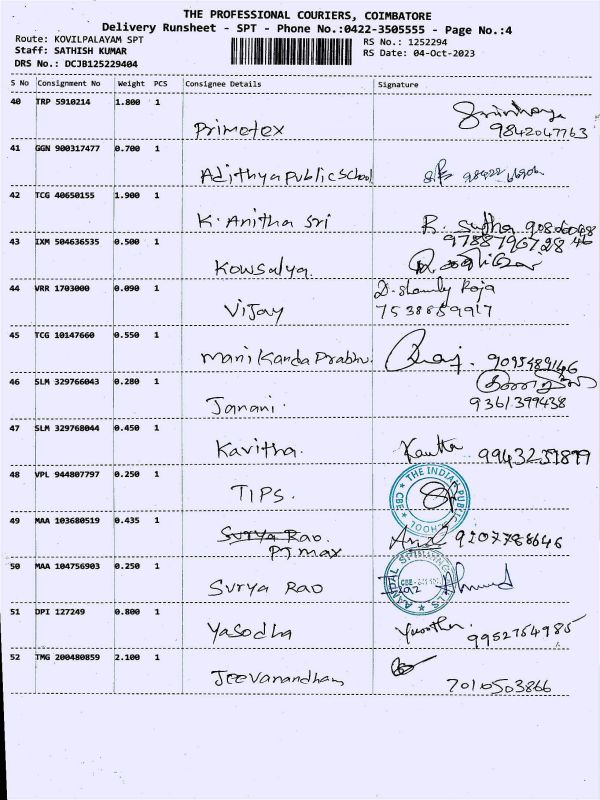 THE PROFESSIONAL COURIERS, COIMBATORE
Delivery Runsheet - SPT - Phone No.:0422-3505555 - Page No.:4
Route: KOVILPALAYAM SPT
Staff: SATHISH KUMAR
DRS No.: DCJB125229404
RS No.: 1252294
RS Date: 04-Oct-2023
S No Consignment No Weight PCS Consignee Details Signature
40 TRP 5910214 1.800 1
Primetex 9842047763
41 GGN 900317477 0.700 1
Adithya public school
42 TCG 40650155 1.900 1
K. Anitha Sri R. Sutha
43 IXM 504636535 0.500 1
Kowsalya.
44 VRR 1703000 0.090 1
Vijay
D. shamly Roja
7538859917
45 TCG 10147660 0.550 1
Mani Kanda Prabhu.
46 SLM 329766043 0.280 1
Janani. 9361399438
47 SLM 329768044 0.450 1
Kavitha. Kavitha
48 VPL 944807797 0.250 1
TIPS.
THE INDIAN PUBLIC SCHOOL
CBE
49 MAA 103680519 0.435 1
Surya Rao. 9207788646
PT max
50 MAA 104756903 0.250 1
Surya Rao
51 DPI 127249 0.800 1
Yasodha 9952754985
52 TMG 200480859 2.100 1
Jeevanandham 7010503866